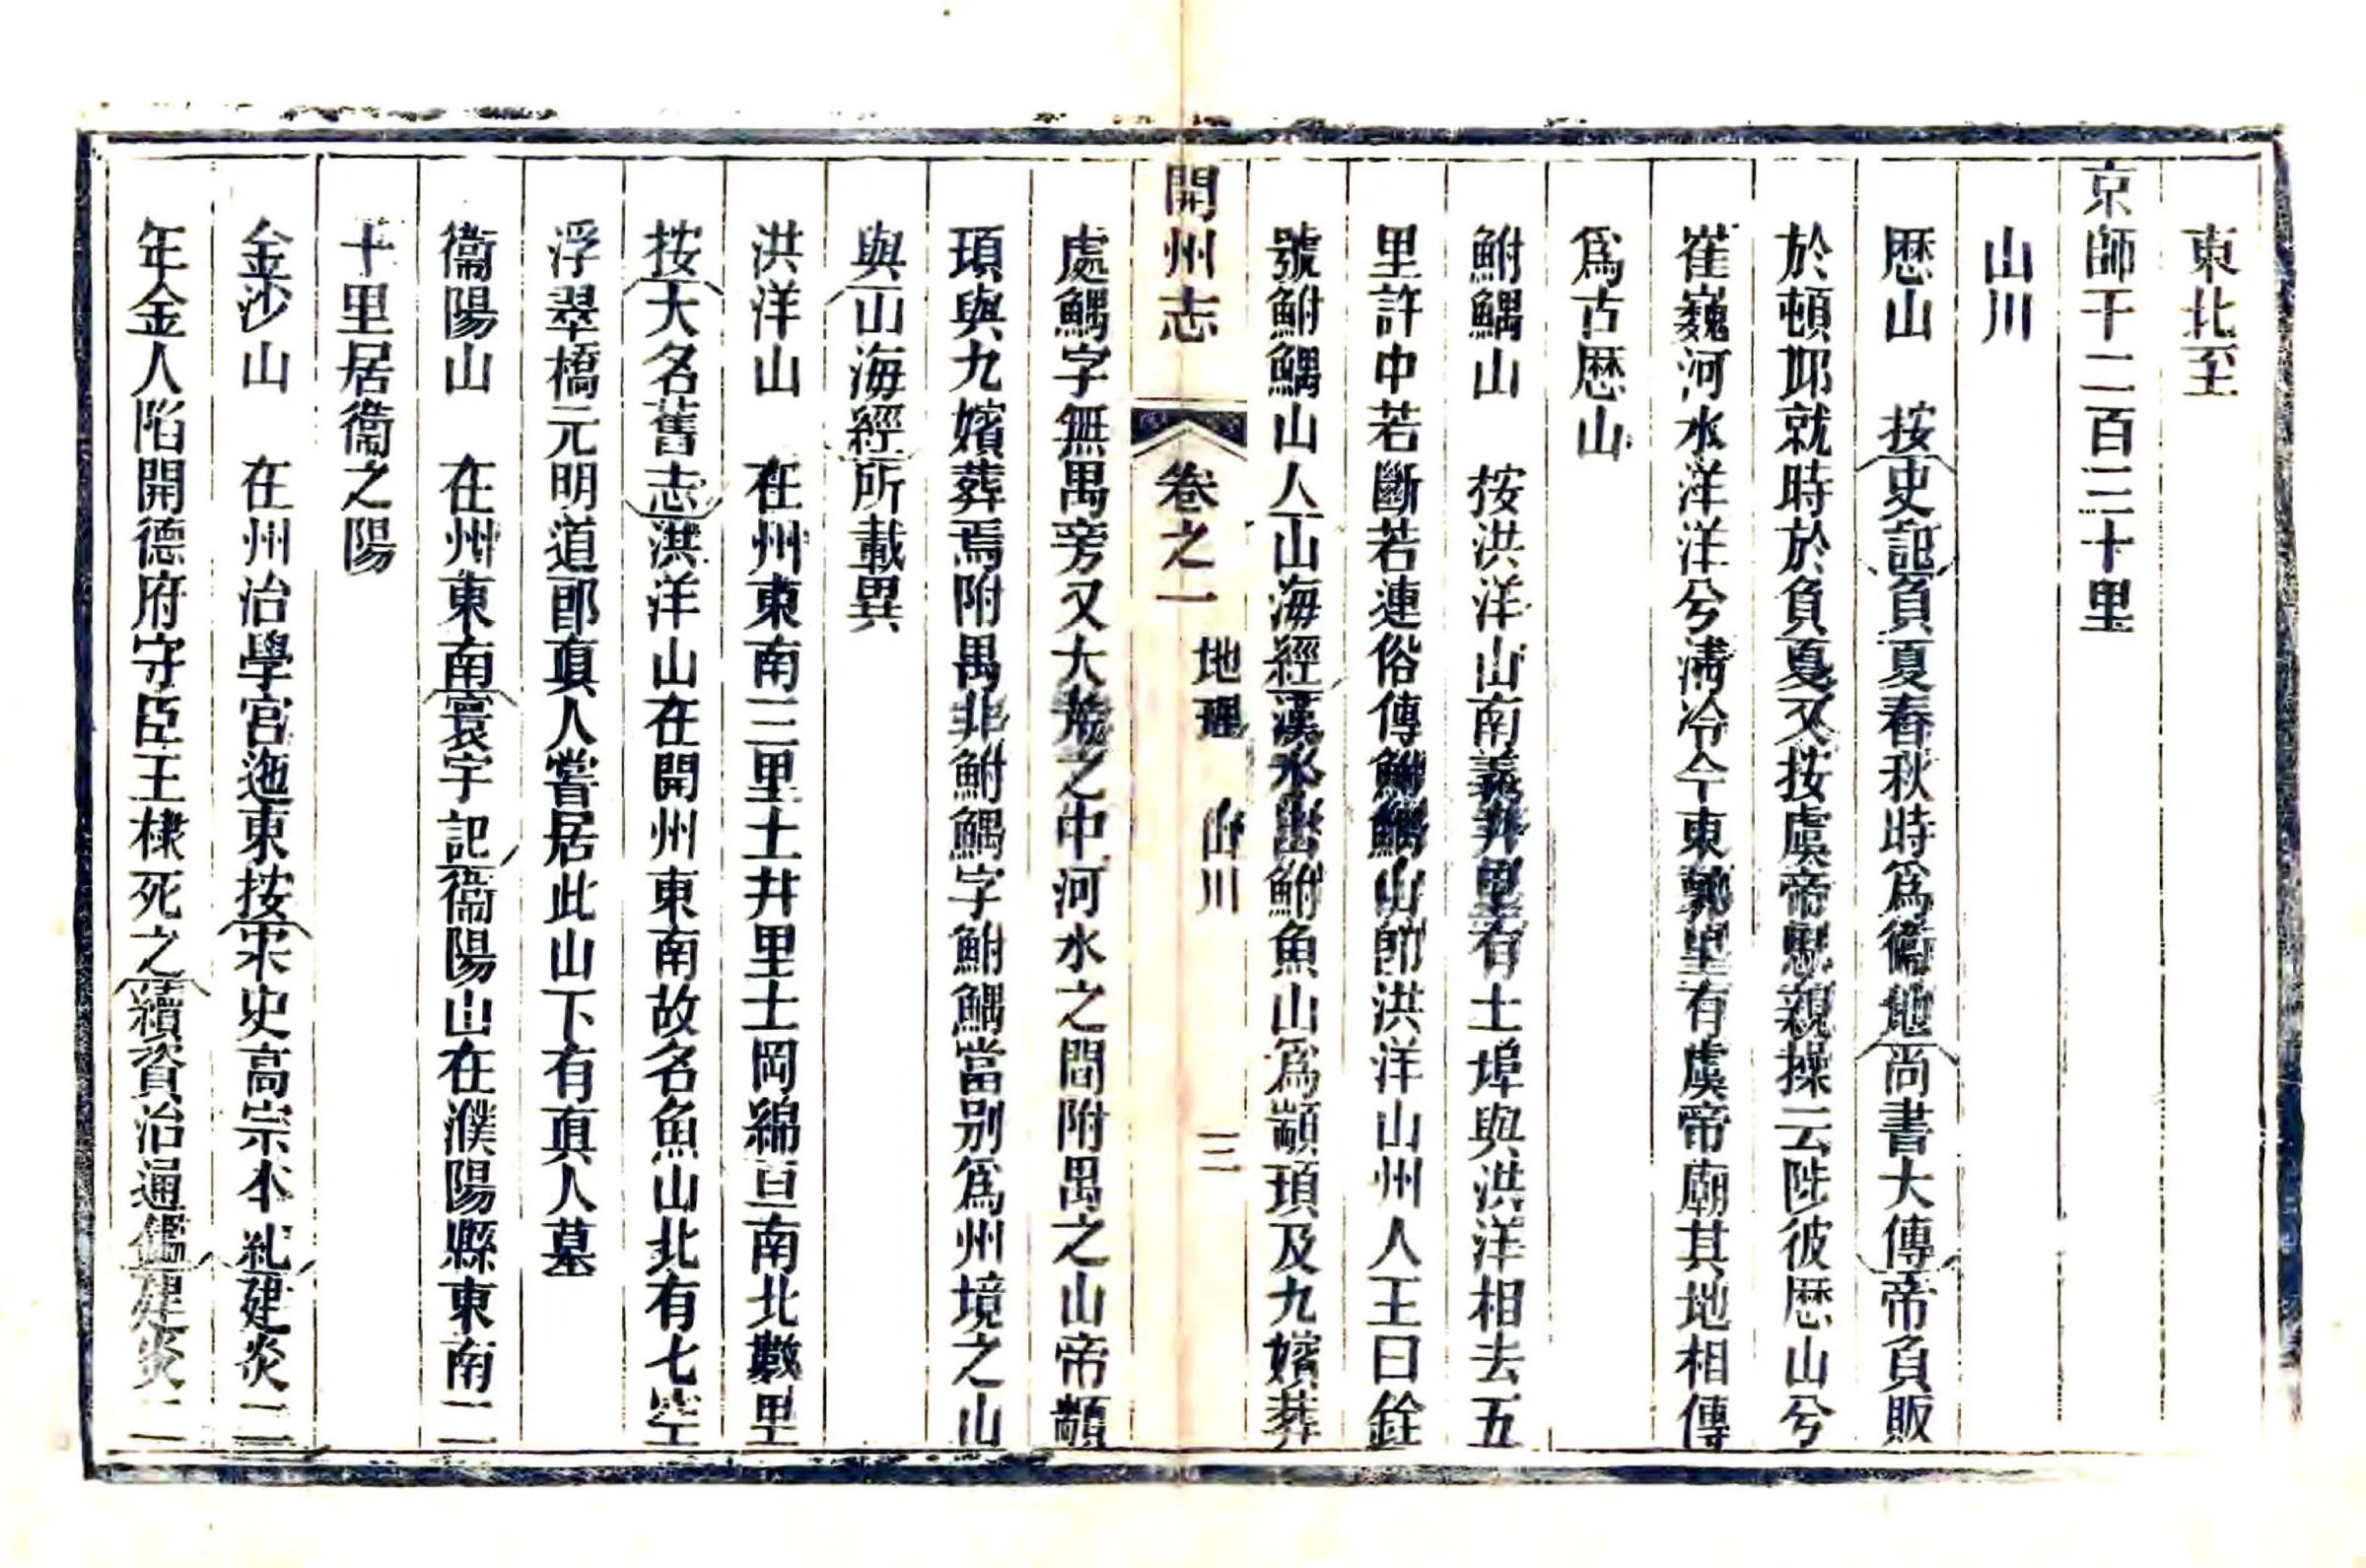 東北至
京師千二百三十里
山川
歴山　按史記負夏春秋時爲衞地尚書大傳帝負販
於頓邱就時於負夏又按虞帝思親操云陟彼歴山兮
崔巍河水洋洋兮淸冷今東郭里有虞帝廟其地相傳
爲古歴山
鮒鰅山　按洪洋山南義井里有土埠與洪洋相去五
里許中若斷若連俗傳鮒鰅山卽洪洋山州人王曰銓
號鮒鰅山人山海經漢水出鮒魚山爲顓頊及九嬪葬
開州志　卷之一　地理　山川　三
處鰅字無禺旁又大荒之中河水之間附禺之山帝顓
頊與九嬪葬焉附禺非鮒鰅字鮒鰅當别爲州境之山
與山海經所載異
洪洋山　在州東南三里土井里土岡綿亘南北數里
按大名舊志洪洋山在開州東南故名魚山北有七空
浮翠橋元明道郎真人嘗居此山下有真人墓
衞陽山　在州東南寰宇記衞陽山在濮陽縣東南二
十里居衞之陽
金沙山　在州治學宫迤東按宋史高宗本紀建炎二
年金人陷開德府守臣王棣死之續資治通鑑建炎二